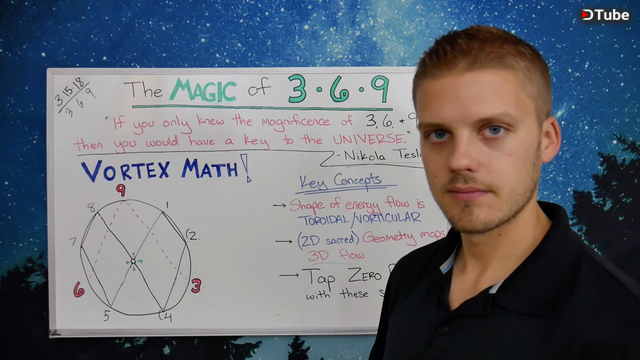 DTube
3 · 15 · 18
3 6 9
The MAGIC of 3 · 6 · 9
"If you only knew the magnificence of 3, 6, + 9
then you would have a key to the UNIVERSE."
- Nikola Tesl
VORTEX MATH!
Key Concepts
→ Shape of energy flow is
TOROIDAL/VORTICULAR
→ (2D sacred) Geometry maps
3D flow
→ TAP ZERO
with these
9
8 1
7 2
6 3
5 4